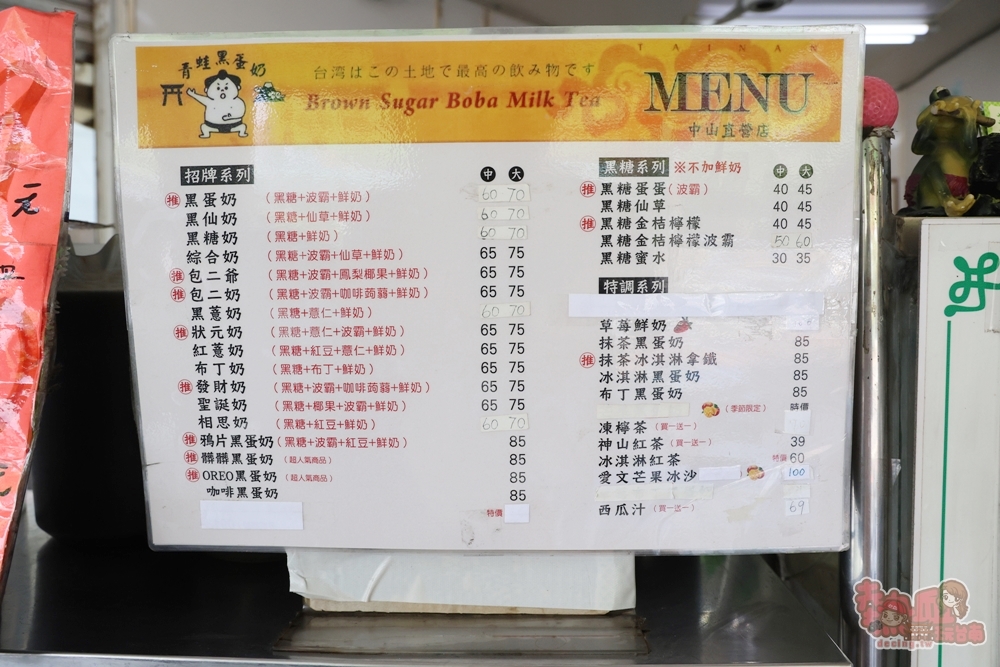 青蛙黑蛋奶
TAINAN
台湾はこの土地で最高の飲み物です
Brown Sugar Boba Milk Tea
MENU
中山直營店
招牌系列 中 大
推 黑蛋奶 (黑糖+波霸+鮮奶) 60 70
黑仙奶 (黑糖+仙草+鮮奶) 60 70
黑糖奶 (黑糖+鮮奶) 60 70
綜合奶 (黑糖+波霸+仙草+鮮奶) 65 75
推 包二爺 (黑糖+波霸+鳳梨椰果+鮮奶) 65 75
推 包二奶 (黑糖+波霸+咖啡蒟蒻+鮮奶) 65 75
黑薏奶 (黑糖+薏仁+鮮奶) 60 70
推 狀元奶 (黑糖+薏仁+波霸+鮮奶) 65 75
紅薏奶 (黑糖+紅豆+薏仁+鮮奶) 65 75
布丁奶 (黑糖+布丁+鮮奶) 65 75
推 發財奶 (黑糖+波霸+咖啡蒟蒻+鮮奶) 65 75
聖誕奶 (黑糖+椰果+波霸+鮮奶) 65 75
相思奶 (黑糖+紅豆+鮮奶) 60 70
推 鴉片黑蛋奶 (黑糖+波霸+紅豆+鮮奶) 85
推 髒髒黑蛋奶 (超人氣商品) 85
推 OREO黑蛋奶 (超人氣商品) 85
咖啡黑蛋奶 85
特價
黑糖系列 ※不加鮮奶 中 大
推 黑糖蛋蛋(波霸) 40 45
黑糖仙草 40 45
推 黑糖金桔檸檬 40 45
黑糖金桔檸檬波霸 50 60
黑糖蜜水 30 35
特調系列
草莓鮮奶
抹茶黑蛋奶 85
推 抹茶冰淇淋拿鐵 85
冰淇淋黑蛋奶 85
布丁黑蛋奶 85
(季節限定) 時價
凍檸茶 (買一送一)
神山紅茶 (買一送一) 39
冰淇淋紅茶 特價 60
愛文芒果冰沙 100
西瓜汁 (買一送一) 69
元
decing.tw